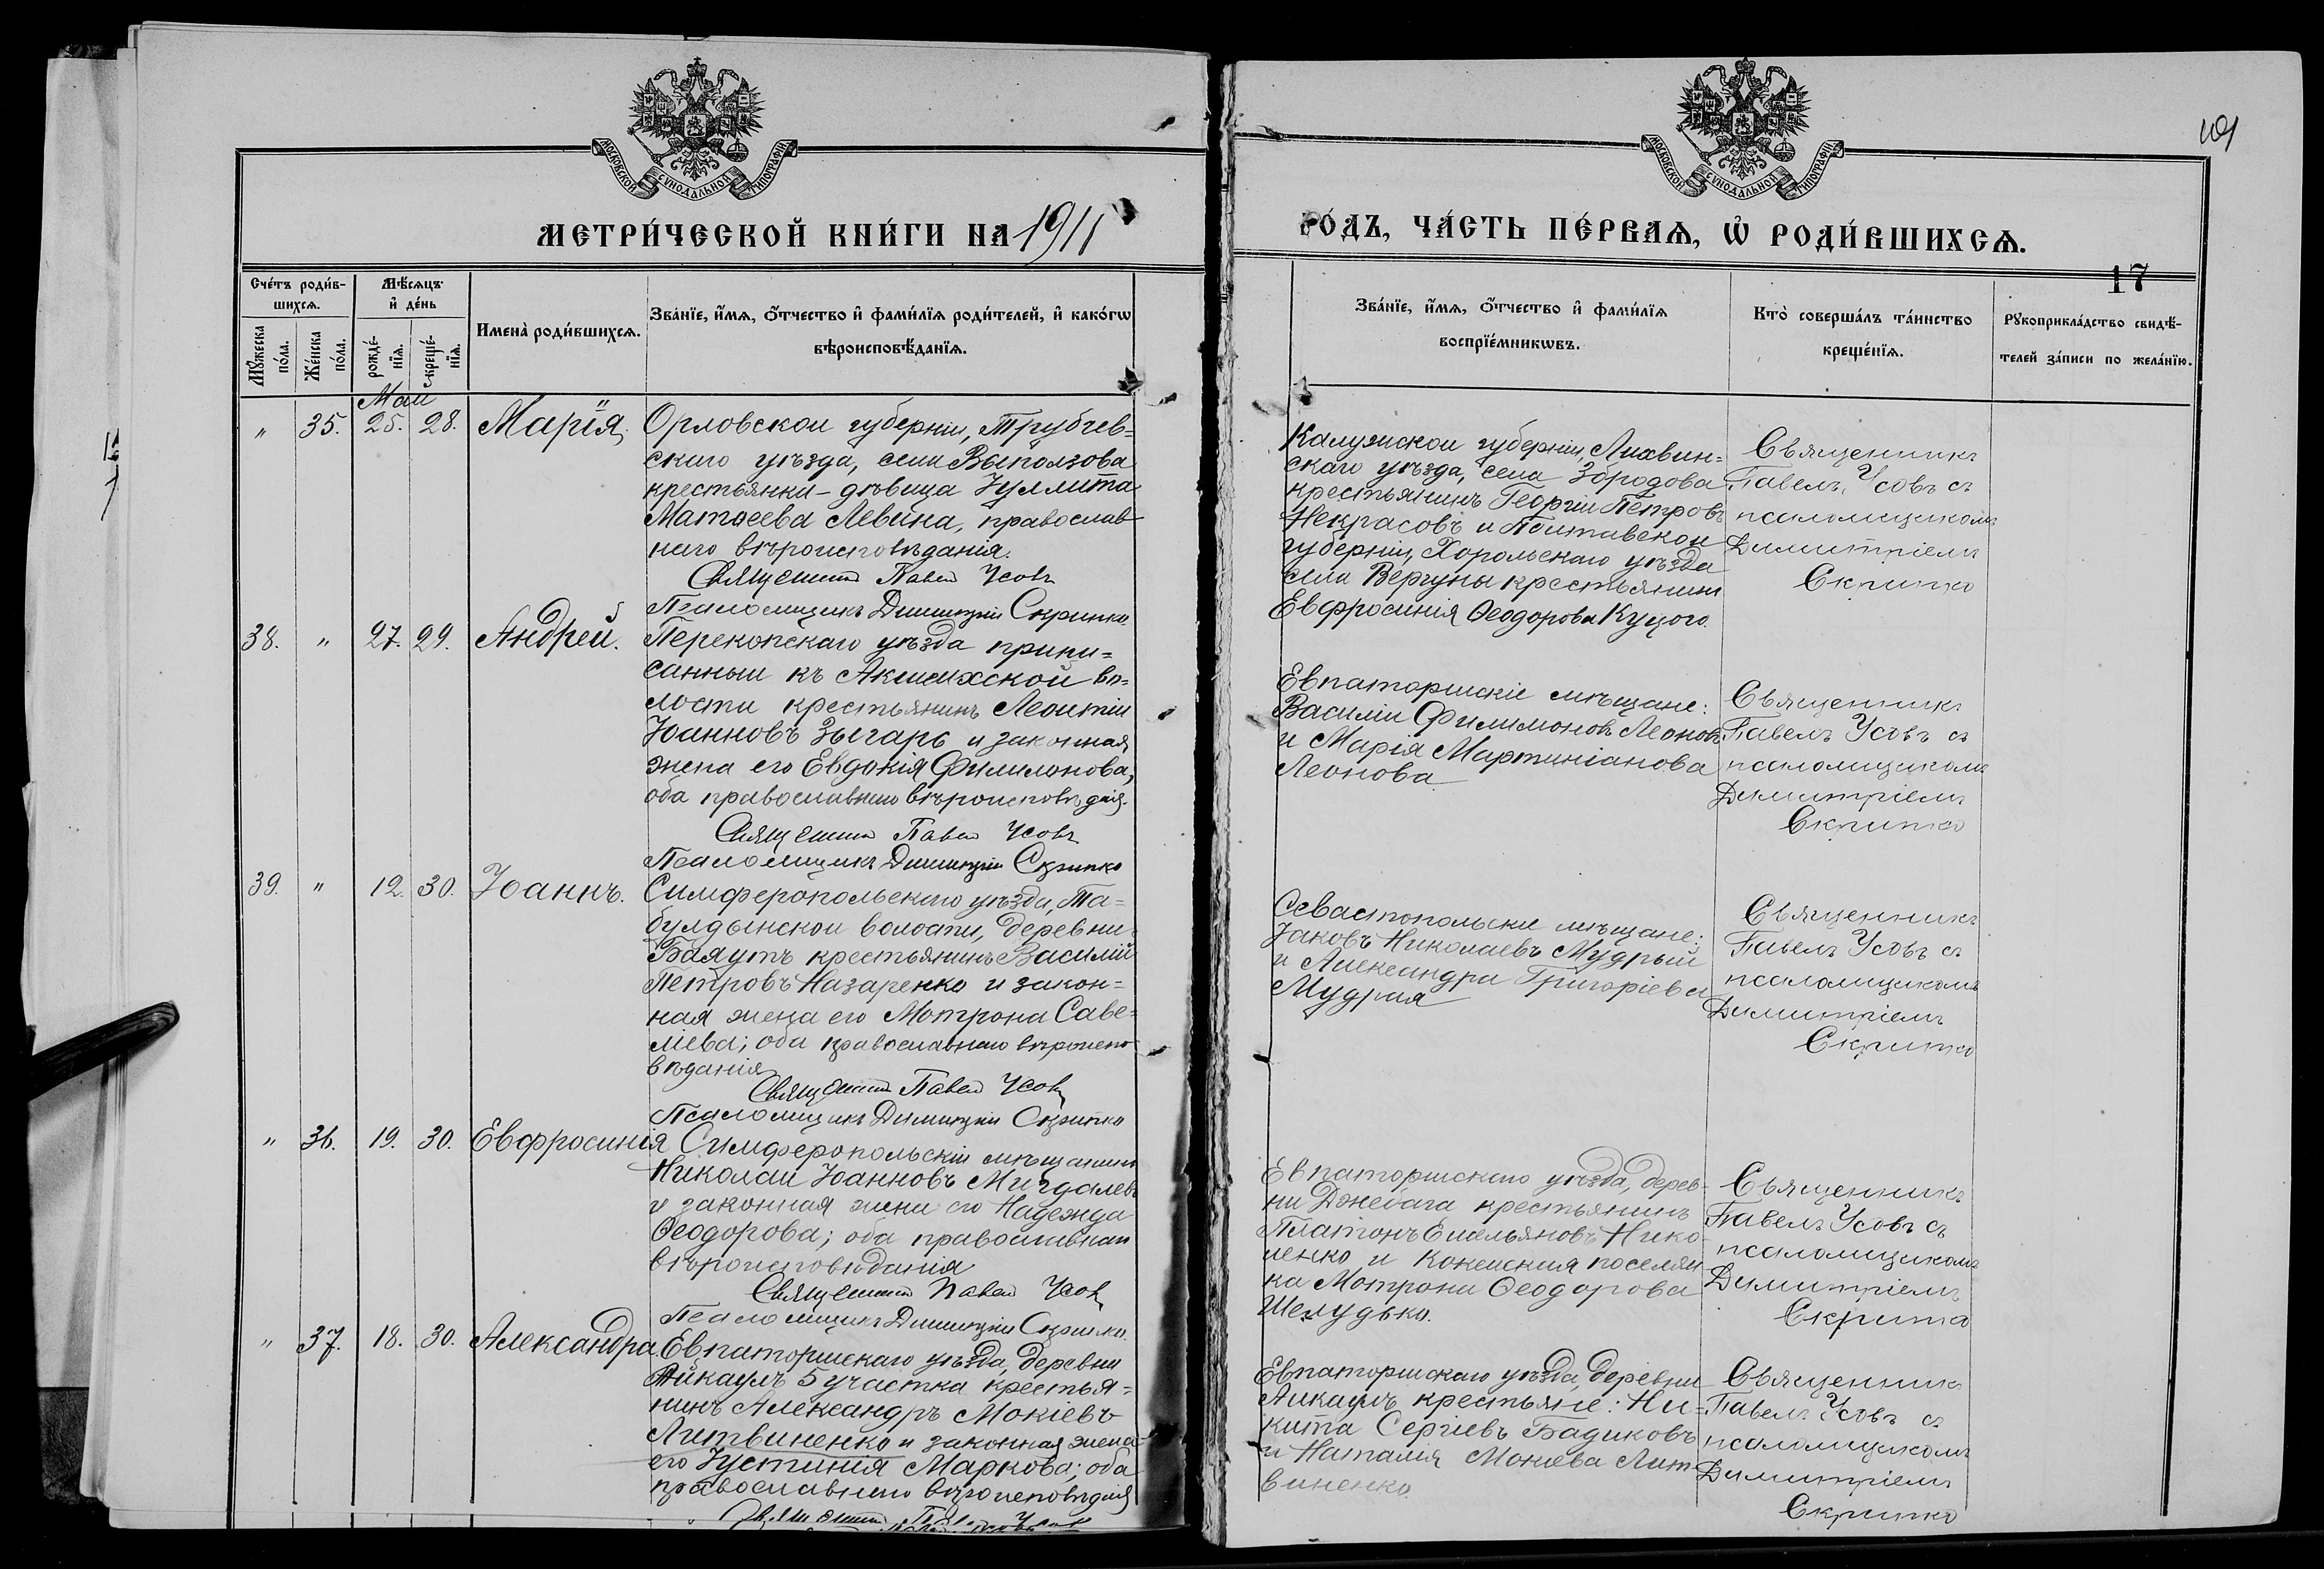 МОСКОВСКОЙ СУНОДАЛЬНОЙ ТИПОГРАФІИ
МЕТРИ́ЧЕСКОЙ КНИ́ГИ НА 1911
Сче́тъ роди́в-
шихсѧ.
Мѣ́сѧцъ
и҆ де́нь
Мꙋ́жеска
по́ла.
Же́нска
по́ла.
рожде́-
нїѧ.
креще́-
нїѧ.
Имена̀ роди́вшихсѧ.
Зва́нїе, и҆́мѧ, ѻ҆́тчество и҆ фами́лїѧ роди́телей, и҆ како́гѡ
вѣроисповѣ́данїѧ.
Маи
" 35. 25. 28. Марія.
Орловскои губерніи, Трубчев=
скаго уѣзда, села Выползова
крестьянка-дѣвица Іуллита
Матѳеева Левина, православ
наго вѣроисповѣданія.
Священникъ Павел Усовъ
Псаломщикъ Димитріи Скрипко
38. " 27. 29. Андрей.
Перекопскаго уѣзда припи=
санныи къ Акшихской во=
лости крестьянинъ Леонтіи
Іоанновъ Зыгарь и законная
жена его Евдокія Филимонова,
оба православнаго вѣроисповѣданія.
Священникъ Павел Усовъ
Псаломщикъ Димитріи Скрипко
39. " 12. 30. Іоаннъ.
Симферопольскаго уѣзда, Та=
булдынскои волости, деревни
Баяутъ крестьянинъ Василій
Петровъ Назаренко и закон=
ная жена его Мотрона Саве=
ліева; оба православнаго вѣроиспо
вѣданія
Священникъ Павел Усовъ
Псаломщикъ Димитріи Скрипко
" 36. 19. 30. Евфросинія
Симферопольскіи мѣщанинъ
Николаи Іоанновъ Мигдалевъ
и законная жена его Надежда
Ѳеодорова; оба православнаго
вѣроисповѣданія
Священникъ Павел Усовъ
Псаломщикъ Димитріи Скрипко.
" 37. 18. 30. Александра.
Евпаторіискаго уѣзда, деревни
Айкаулъ 5 участка крестья=
нинъ Александръ Мокіевъ
Литвиненко и законная жена
его Іустинія Маркова; оба
православнаго вѣроисповѣданія
Священникъ Усовъ
МОСКОВСКОЙ СУНОДАЛЬНОЙ ТИПОГРАФІИ
ГО́ДЪ, ЧА́СТЬ ПЕ́РВАѦ, Ѡ҆ РОДИ́ВШИХСѦ.
17
Зва́нїе, и҆́мѧ, ѻ҆́тчество и҆ фами́лїѧ
воспрїе́мникѡвъ.
Кто̀ соверша́лъ та́инство
креще́нїѧ.
Рꙋкоприкла́дство свидѣ́-
телей за́писи по жела́нїю.
Калужскои губерніи, Лихвин=
скаго уѣзда, села Збродова
крестьянинъ Георгіи Петровъ
Некрасовъ и Полтавскои
губерніи, Хорольскаго уѣзда
села Вергуны крестьянка
Евфросинія Ѳеодорова Куцого.
Священникъ
Павелъ Усовъ съ
псаломщикомъ
Димитріемъ
Скрипко
Евпаторіискіе мѣщане:
Василіи Филимоновъ Леоновъ
и Марія Мартиніанова
Леонова
Священникъ
Павелъ Усовъ съ
псаломщикомъ
Димитріемъ
Скрипко
Севастопольскіе мѣщане:
Іаковъ Николаевъ Мудрый
и Александра Григоріева
Мудрая
Священникъ
Павелъ Усовъ съ
псаломщикомъ
Димитріемъ
Скрипко
Евпаторіискаго уѣзда, дерев-
ни Джебага крестьянинъ
Платонъ Емельяновъ Нико-
ленко и поселян
ка Мотрона Ѳеодорова
Шелудько.
Священникъ
Павелъ Усовъ съ
псаломщикомъ
Димитріемъ
Скрипко
Евпаторіискаго уѣзда, деревни
Аикаулъ крестьяне: Ни=
кита Сергіевъ Бадиковъ
и Наталія Мокіева Лит-
виненко.
Священникъ
Павелъ Усовъ съ
псаломщикомъ
Димитріемъ
Скрипко